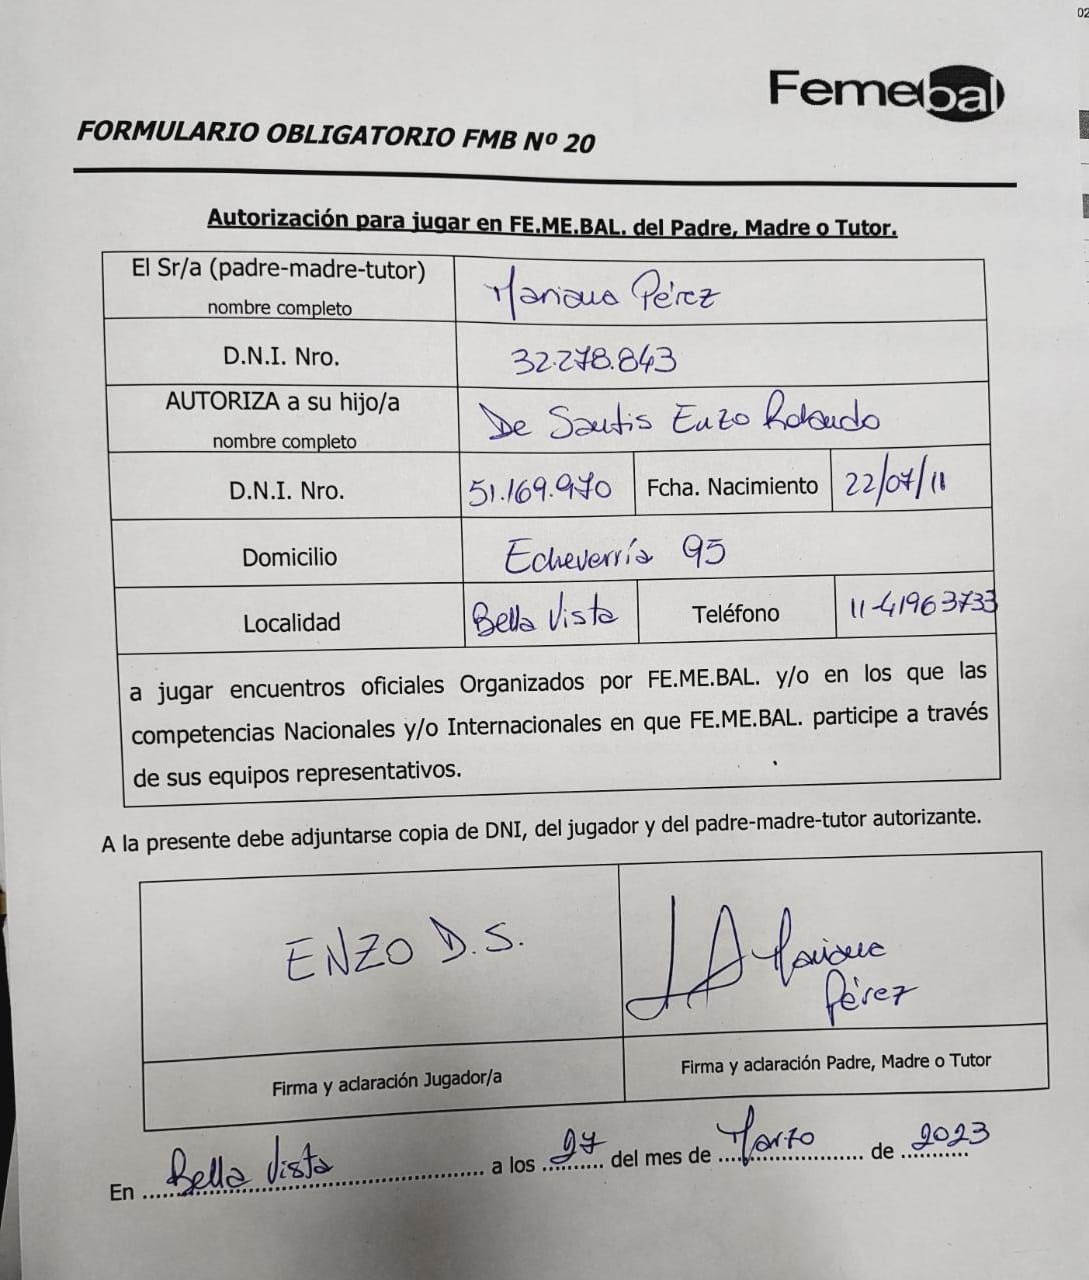 02
Femebal
FORMULARIO OBLIGATORIO FMB Nº 20
Autorización para jugar en FE.ME.BAL. del Padre, Madre o Tutor.
El Sr/a (padre-madre-tutor)
nombre completo
Mariana Pérez
D.N.I. Nro.
32.278.843
AUTORIZA a su hijo/a
nombre completo
De Santis Enzo Rolando
D.N.I. Nro.
51.169.970
Fcha. Nacimiento
22/07/11
Domicilio
Echeverría 95
Localidad
Bella Vista
Teléfono
11-41963733
a jugar encuentros oficiales Organizados por FE.ME.BAL. y/o en los que las
competencias Nacionales y/o Internacionales en que FE.ME.BAL. participe a través
de sus equipos representativos.
A la presente debe adjuntarse copia de DNI, del jugador y del padre-madre-tutor autorizante.
ENZO D.S.
Mariana
Pérez
Firma y aclaración Jugador/a
Firma y aclaración Padre, Madre o Tutor
En Bella Vista a los 27 del mes de Marzo de 2023